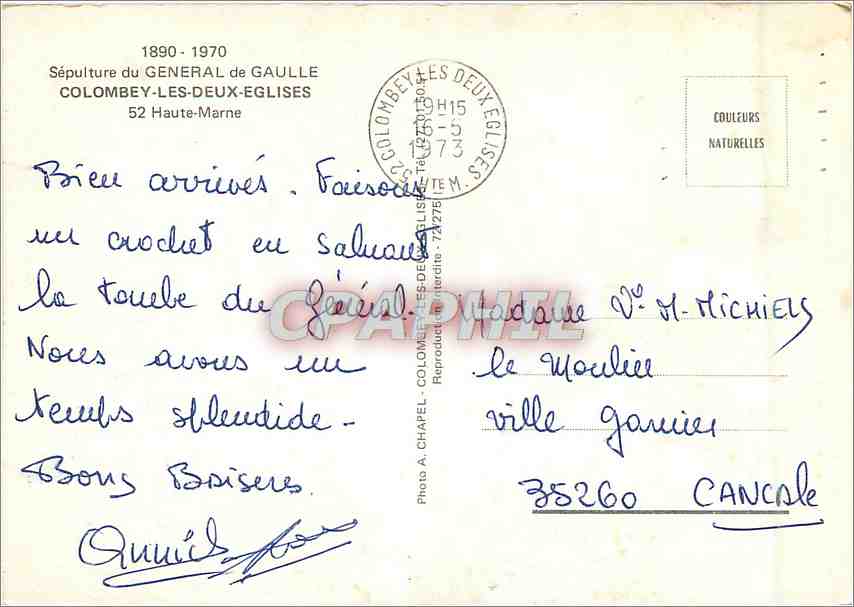 1890 - 1970
Sépulture du GENERAL de GAULLE
COLOMBEY-LES-DEUX-EGLISES
52 Haute-Marne
52 COLOMBEY LES DEUX EGLISES
HTE M.
19H15
16-5
1973
COULEURS
NATURELLES
Bien arrivés. Faisons
un crochet en saluant
la tombe du Général.
Nous avons un
temps splendide -
Bons Baisers.
Annick
Photo A. CHAPEL - COLOMBEY-LES-DEUX-EGLISES - Tél.
Reproduction Interdite - 72/275
Madame Vve M. MICHIELS
le Moulin
ville garnier
35260 CANCALE
CPAPHIL